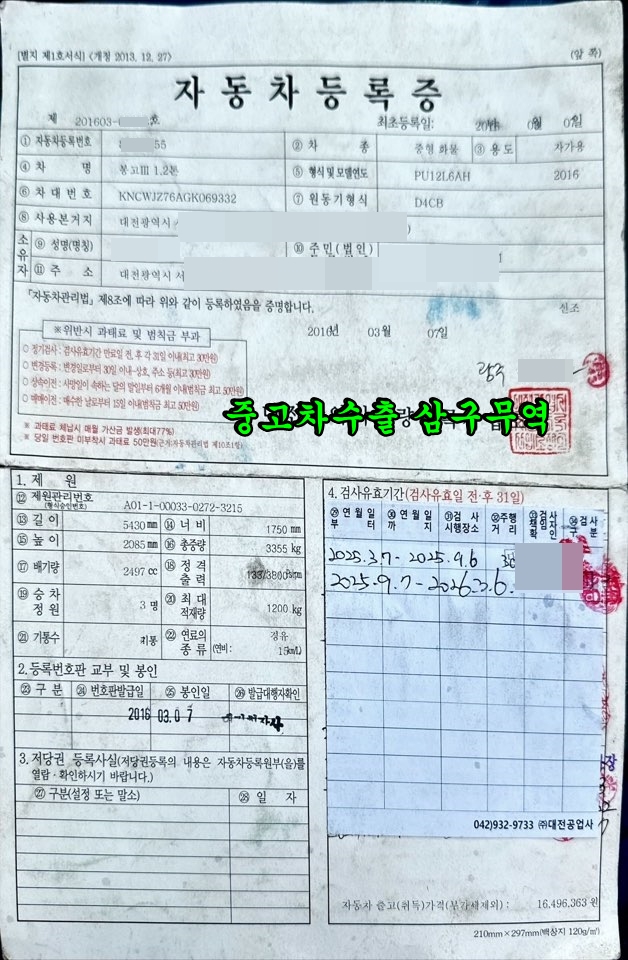 [별지 제1호서식] <개정 2013. 12. 27> (앞 쪽)
자동차등록증
제 201603- 호 최초등록일: 년 0 월 07일
① 자동차등록번호 55 ② 차 종 중형 화물 ③ 용 도 자가용
④ 차 명 봉고Ⅲ 1.2톤 ⑤ 형식 및 모델연도 PU12L6AH 2016
⑥ 차 대 번 호 KNCWJZ76AGK069332 ⑦ 원동기형식 D4CB
⑧ 사용본거지 대전광역시
소유자 ⑨ 성명(명칭) ⑩ 주민(법인)
⑪ 주 소 대전광역시 서
「자동차관리법」 제8조에 따라 위와 같이 등록하였음을 증명합니다.
2016년 03월 07일
※위반시 과태료 및 범칙금 부과
○ 정기검사: 검사유효기간 만료일 전·후 각 31일 이내(최고 30만원)
○ 변경등록: 변경일로부터 30일 이내-상호, 주소 등(최고 30만원)
○ 상속이전: 사망일이 속하는 달의 말일부터 6개월 이내(범칙금 최고 50만원)
○ 매매이전: 매수한 날로부터 15일 이내(범칙금 최고 50만원)
※ 과태료 체납시 매월 가산금 발생(최대77%)
※ 당일 번호판 미부착시 과태료 50만원(근거:자동차관리법 제10조1항)
중고차수출 삼구무역
1. 제 원
⑫ 제원관리번호 (형식승인번호) A01-1-00033-0272-3215
⑬ 길 이 5430 mm ⑭ 너 비 1750 mm
⑮ 높 이 2085 mm ⑯ 총중량 3355 kg
⑰ 배기량 2497 cc ⑱ 정 격 출 력 133/3800 ps/rpm
⑲ 승 차 정 원 3 명 ⑳ 최 대 적재량 1200 kg
㉑ 기통수 4기통 ㉒ 연료의 종 류 경유 (연비: km/L)
2. 등록번호판 교부 및 봉인
㉓ 구 분 ㉔ 번호판발급일 ㉕ 봉인일 ㉖ 발급대행자확인
2016 03.07
3. 저당권 등록사실(저당권등록의 내용은 자동차등록원부(을)를
열람·확인하시기 바랍니다.)
㉗ 구분(설정 또는 말소) ㉘ 일 자
4. 검사유효기간(검사유효일 전·후 31일)
㉙ 연 월 일 부 터 ㉚ 연 월 일 까 지 ㉛ 검 사 시행장소 ㉜ 주행 거 리 ㉝ 검사 책임자 확인 ㉞ 검사 구 분
2025.3.7 - 2025.9.6
2025.9.7 - 2026.3.6.
042)932-9733 ㈜대전공업사
자동차 출고(취득)가격(부가세제외) : 16,496,363 원
210mm×297mm(백상지 120g/㎡)